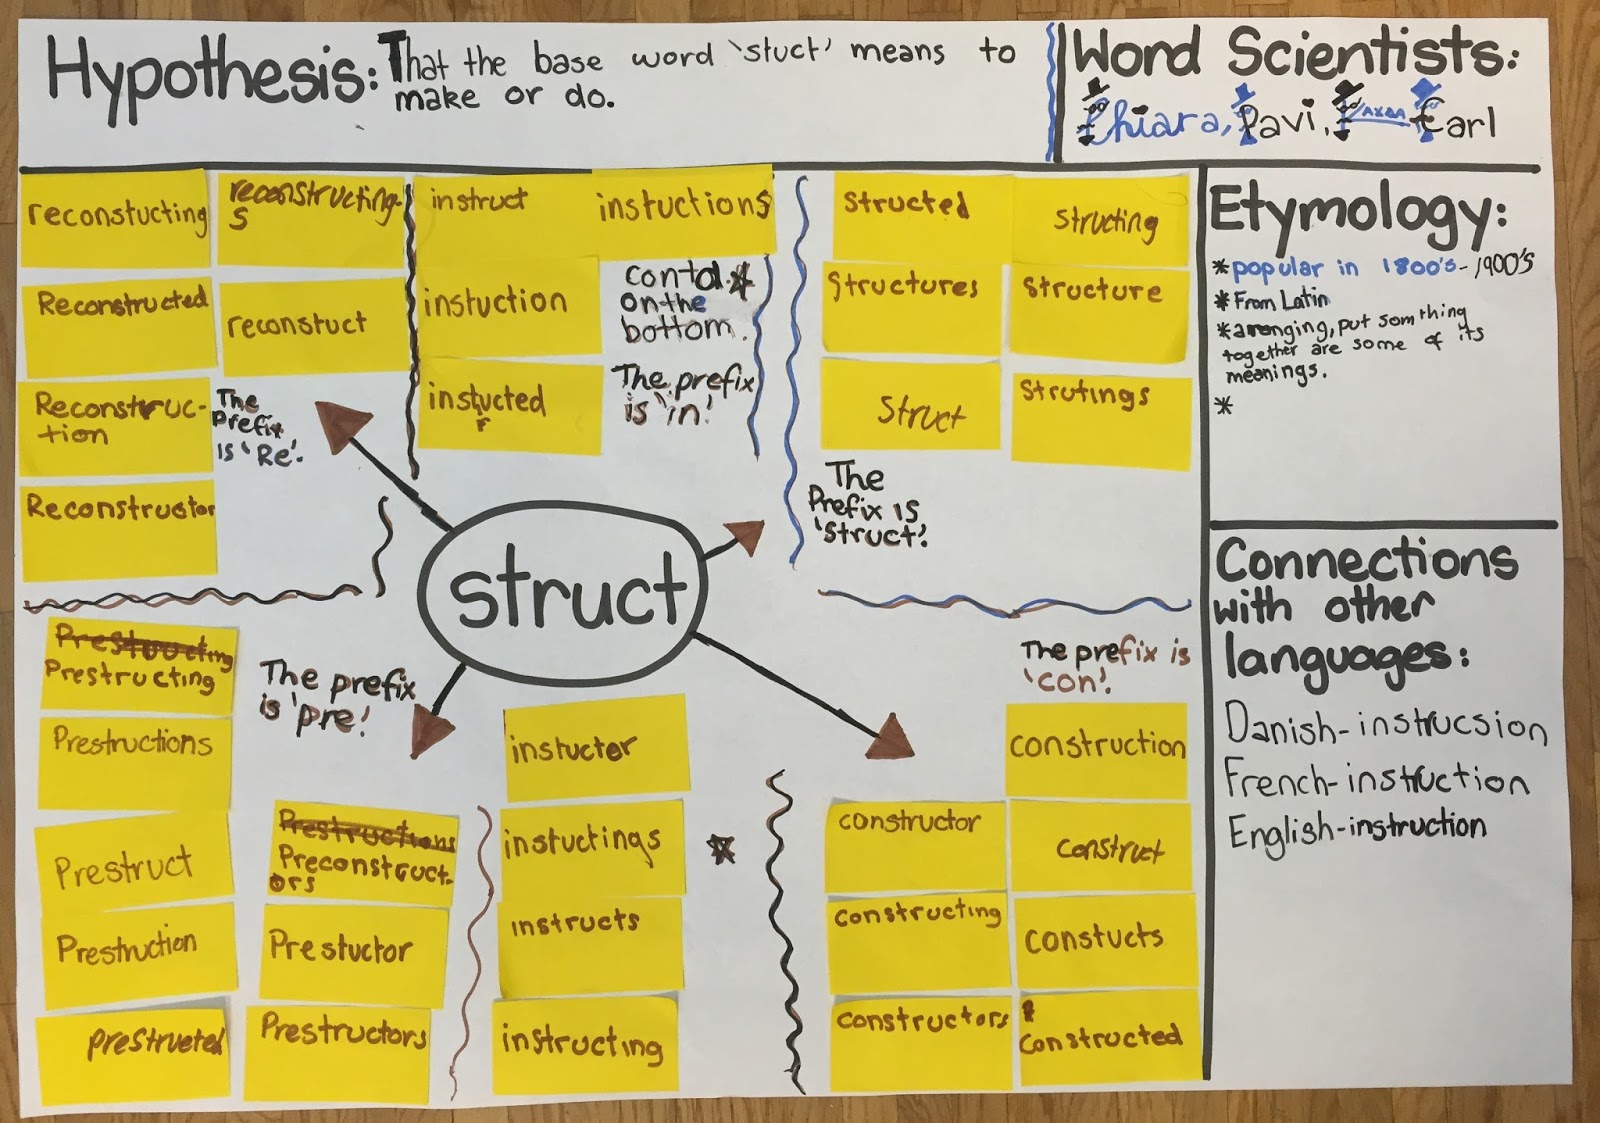 Hypothesis: That the base word 'stuct' means to
make or do.
Word Scientists:
Chiara, Pavi, Earl
reconstucting
reconstructing-
s
Reconstructed
reconstuct
Reconstruc-
tion
The
Prefix
is 'Re'.
Reconstructor
instruct
instuctions
instuction
contd.*
on the
bottom.
instucted
r
The prefix
is 'in'.
Structed
structing
Structures
structure
Struct
Strutings
The
Prefix is
'struct'.
struct
Etymology:
*popular in 1800's-1900's
*From Latin
*arranging, put somthing
together are some of its
meanings.
*
Connections
with other
languages:
Danish-instrucsion
French-instruction
English-instruction
Prestructing
Prestructing
The prefix
is 'pre'.
Prestructions
Prestruct
Prestruction
prestructed
Prestructions
Preconstruct-
ors
Prestuctor
Prestructors
instuctor
instuctings
*
instructs
instructing
The prefix is
'con'.
construction
constructor
construct
constructing
constucts
constructors
constructed